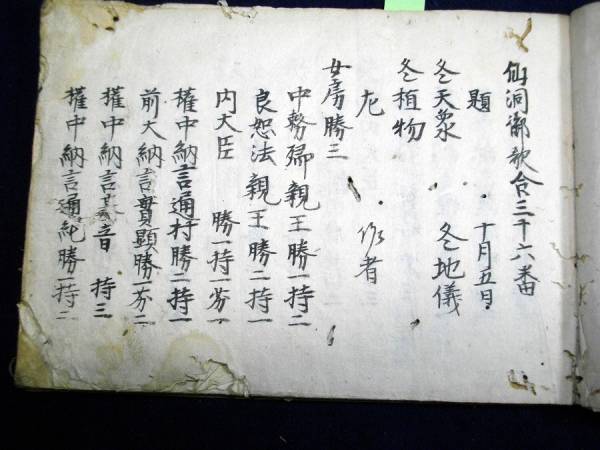 仙洞御歌合三十六番
題 十月五日
冬天象 冬地儀
冬植物
左 作者
女房勝三
中務卿親王勝一持二
良恕法親王勝二持一
内大臣 勝一持一劣一
権中納言通村勝二持一
前大納言實顕勝一劣二
権中納言 音 持三
権中納言通純勝一持二